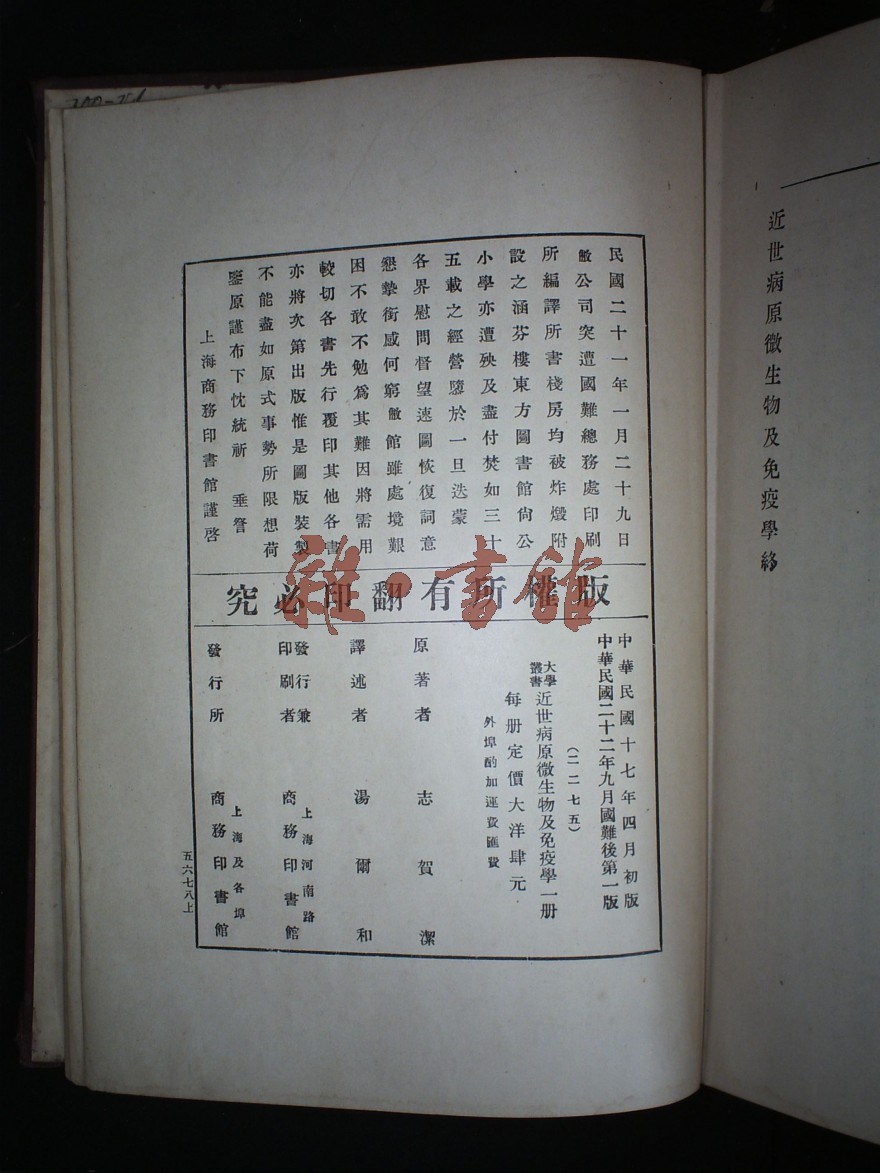 近世病原微生物及免疫學終
民國二十一年一月二十九日
敝公司突遭國難總務處印刷
所編譯所書棧房均被炸燬附
設之涵芬樓東方圖書館尙公
小學亦遭殃及盡付焚如三十
五載之經營隳於一旦迭蒙
各界慰問督望速圖恢復詞意
懇摯銜感何窮敝館雖處境艱
困不敢不勉爲其難因將需用
較切各書先行覆印其他各書
亦將次第出版惟是圖版裝製
不能盡如原式事勢所限想荷
鑒原謹布下忱統祈 垂詧
上海商務印書館謹啓
版權所有翻印必究
雜·書館
中華民國十七年四月初版
中華民國二十二年九月國難後第一版
(二二七五)
大學叢書 近世病原微生物及免疫學一册
每册定價大洋肆元
外埠酌加運費匯費
原著者 志賀潔
譯述者 湯爾和
發行兼印刷者 上海河南路 商務印書館
發行所 上海及各埠 商務印書館
五六七八上